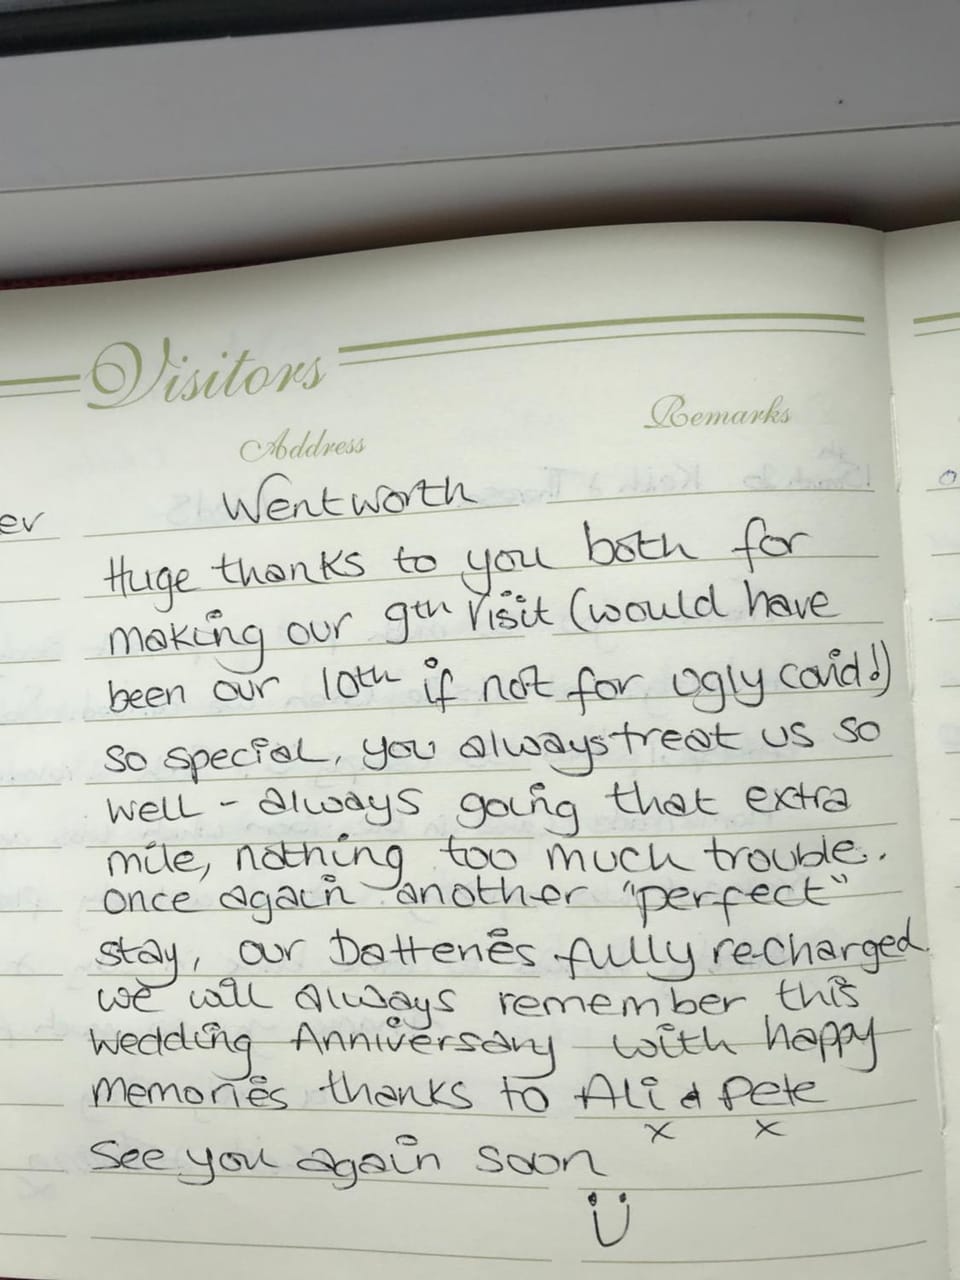 Visitors
Address
Remarks
er
Wentworth
Huge thanks to you both for
making our 9th visit (would have
been our 10th if not for ugly covid!)
so special, you always treat us so
well - always going that extra
mile, nothing too much trouble.
once again another "perfect"
stay, our batteries fully re-charged
we will always remember this
Wedding Anniversary with happy
memories thanks to Ali & Pete
x x
See you again soon